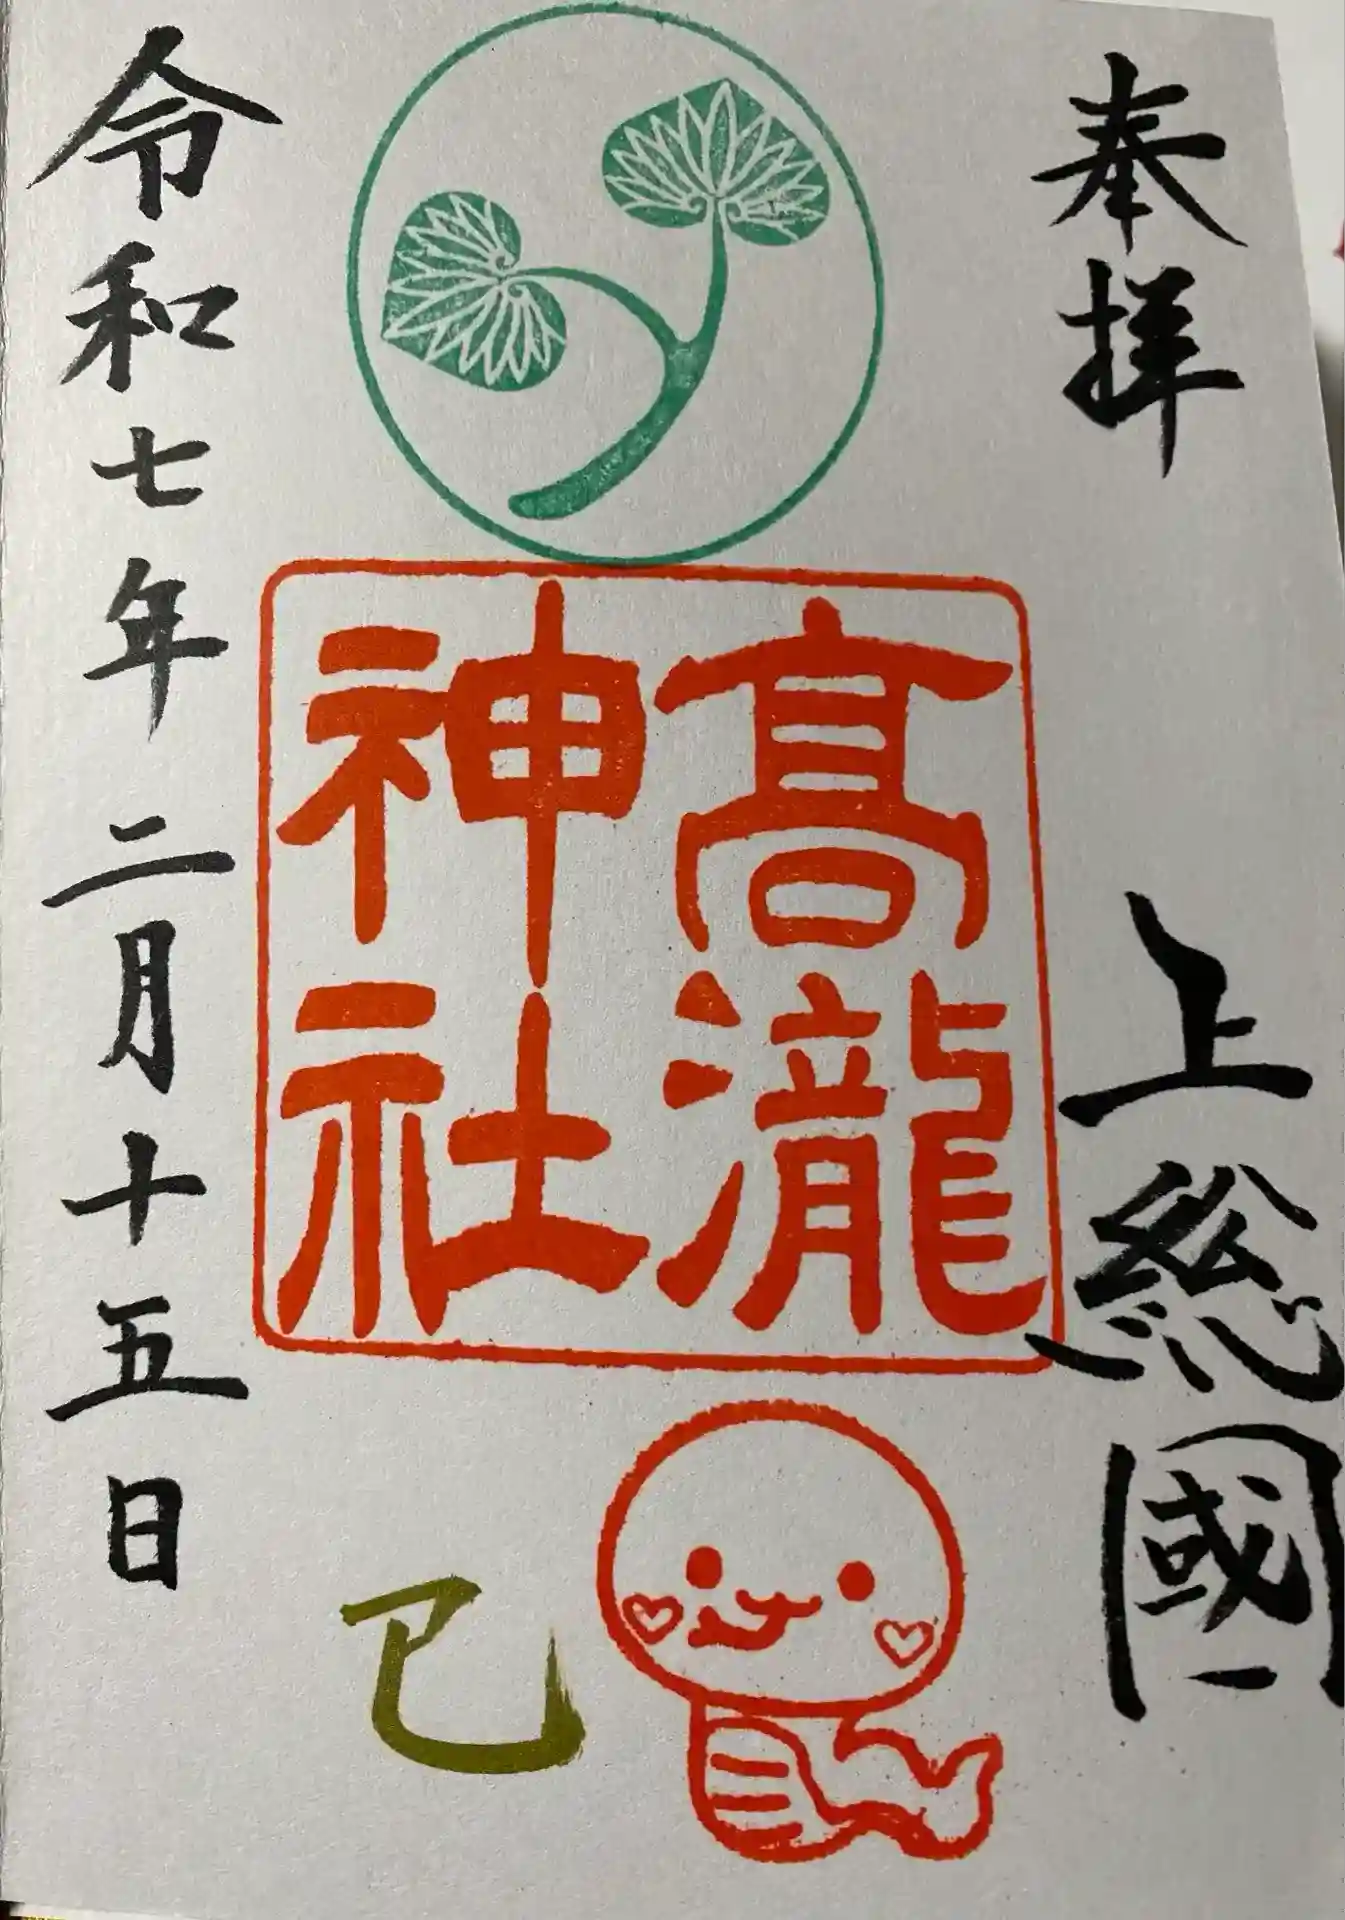 奉拝
上総國一
髙瀧
神社
己
令和七年二月十五日